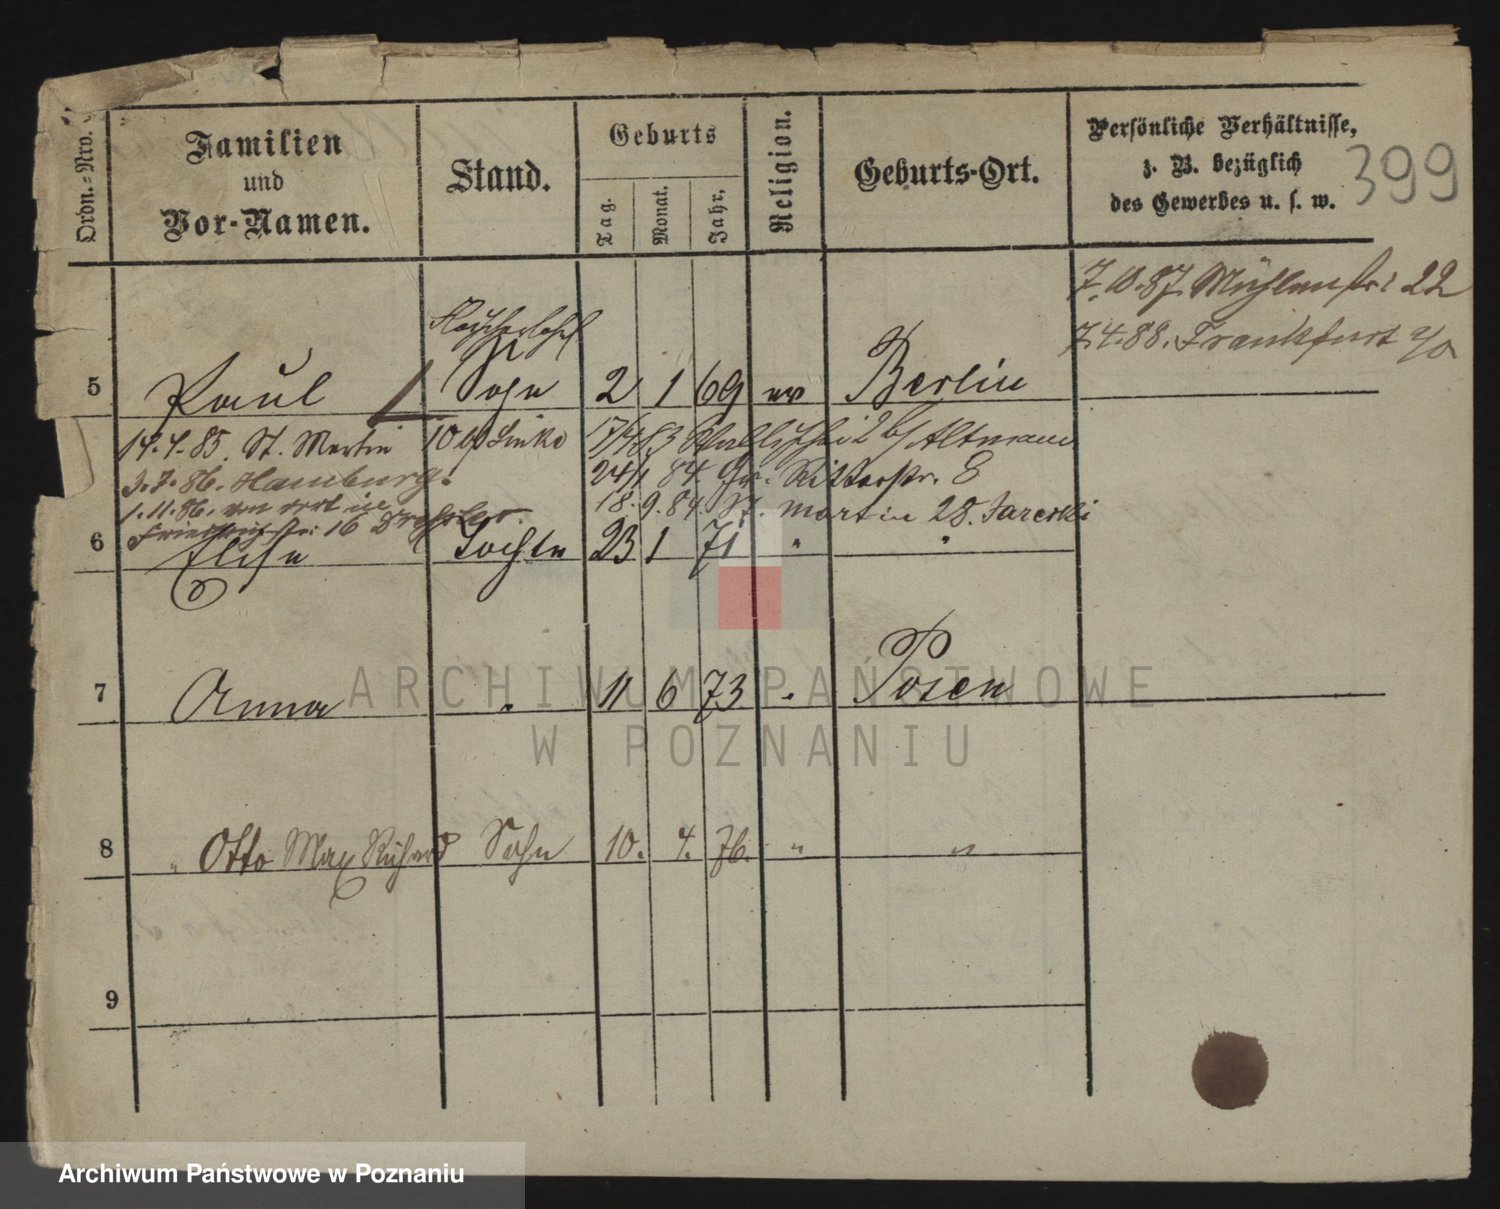 Ordn.-Nro.
Familien
und
Vor-Namen.
Stand.
Geburts
Tag.
Monat.
Jahr.
Religion.
Geburts-Ort.
Persönliche Verhältnisse,
z. B. bezüglich
des Gewerbes u. s. w.
399
7.10.87. Mühlenstr. 22
7.4.88. Frankfurt a/O
5 Paul Sohn 2 1 69 ev Berlin
14.4.85. St. Martin 10 b/ Linke
3.7.86. Hamburg.
1.11.86. von dort in
Friedrichstr. 16 Drechsler.
17/4 83 Wallischei 2 b/ Altmann
24/1 84 Gr. Ritterstr. 8
18.9.84. St. Martin 28.
6 Elise Tochter 23 1 71 " "
7 Anna " 11 6 73 " Posen
8 " Otto Max Richard Sohn 10. 4. 76. " "
9
ARCHIWUM PAŃSTWOWE
W POZNANIU
Archiwum Państwowe w Poznaniu